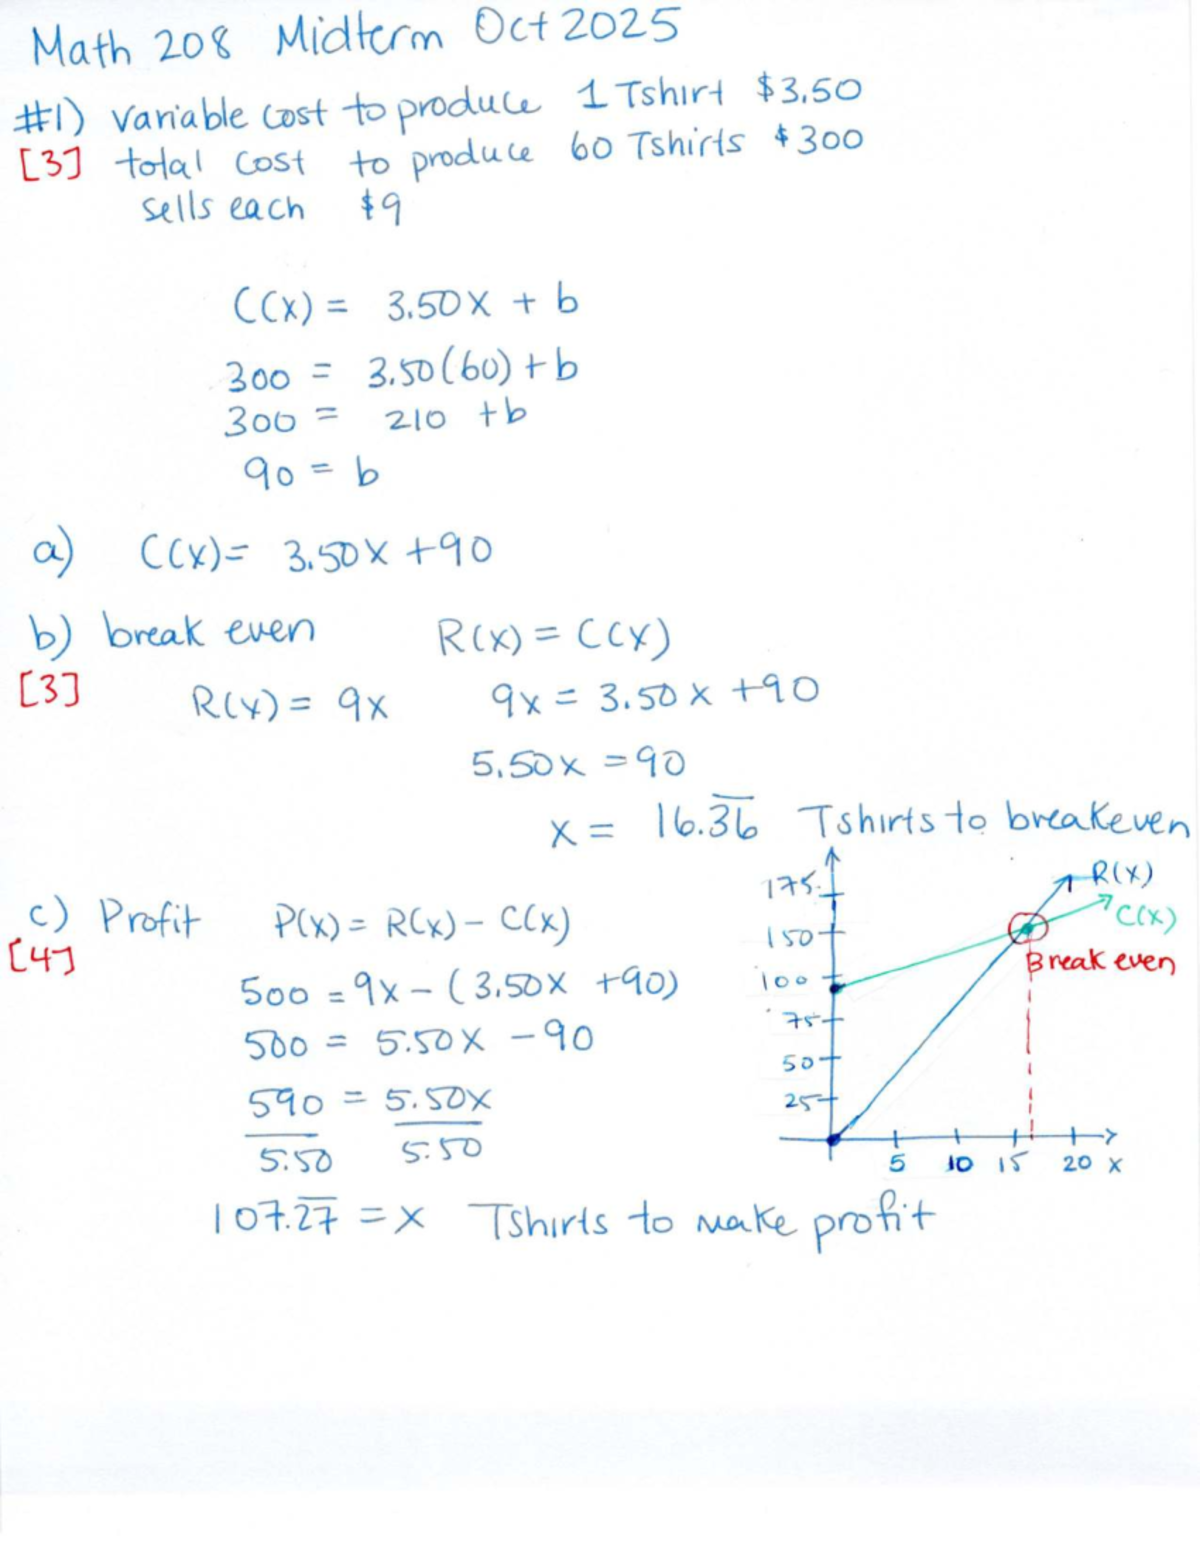 Math 208 Midterm Oct 2025
#1) variable cost to produce 1 Tshirt $3.50
[3] total cost to produce 60 Tshirts $300
sells each $9
C(x) = 3.50x + b
300 = 3.50(60) + b
300 = 210 + b
90 = b
a) C(x) = 3.50x + 90
b) break even R(x) = C(x)
[3] R(x) = 9x 9x = 3.50x + 90
5.50x = 90
x = 16.3̅6̅ Tshirts to breakeven
c) Profit P(x) = R(x) - C(x)
[4]
500 = 9x - (3.50x + 90)
500 = 5.50x - 90
590 = 5.50x
5.50 5.50
107.2̅7̅ = x Tshirts to make profit
175
150
100
75
50
25
R(x)
C(x)
Break even
5 10 15 20 x